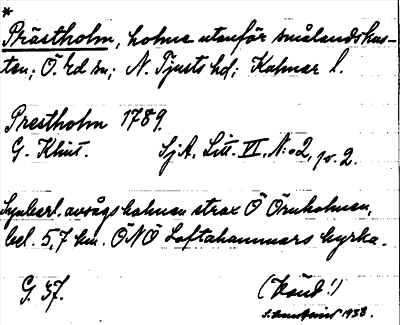 *
Prästholm, holme utanför smålandskus-
ten; Ö. Ed sn; N. Tjusts hd; Kalmar l.
Prestholm 1789.
G. Klint. SjA, Litt. VI, N:o 2, p. 2.
avsågs holmen strax Ö Örnholmen,
bel. 5,7 km. ÖNÖ Loftahammars kyrka.
G. 37.
(Känd!)
1938.